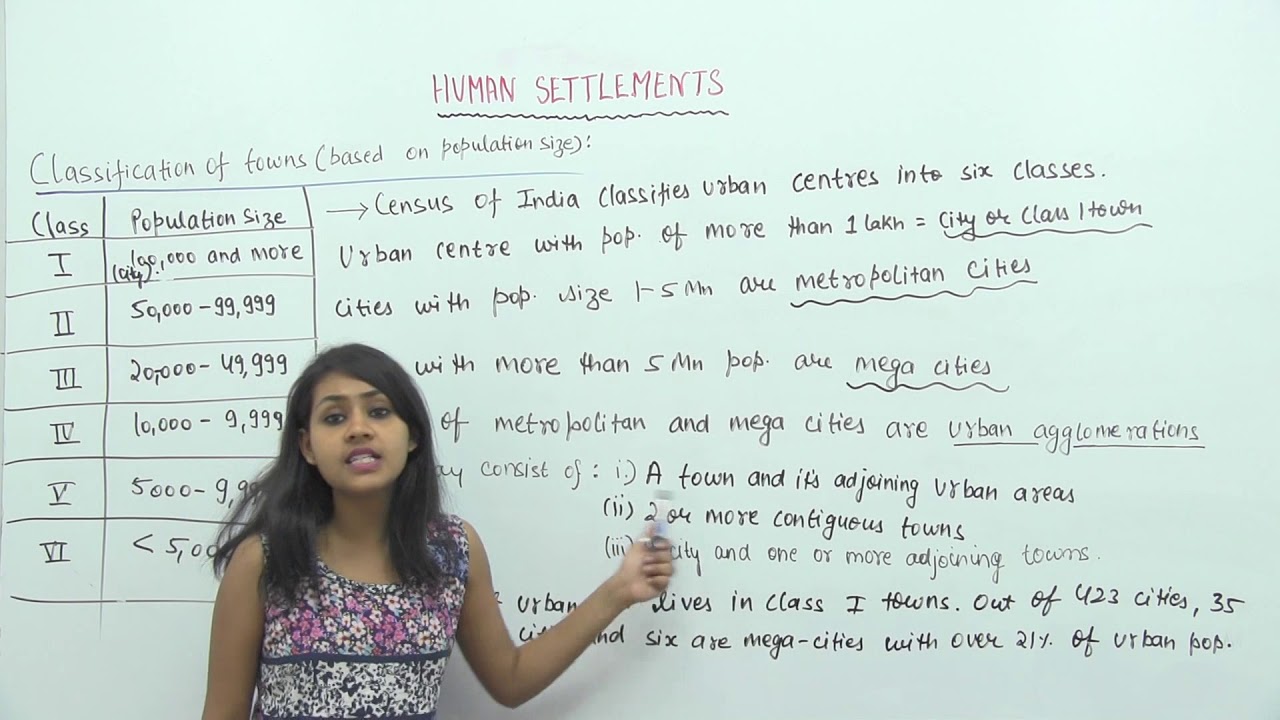 HUMAN SETTLEMENTS
Classification of towns (based on population size):
Class Population Size
I 100,000 and more
(city)
II 50,000 - 99,999
III 20,000 - 49,999
IV 10,000 - 9,999
V 5000 - 9,99
VI < 5,00
→ Census of India classifies urban centres into six classes.
Urban centre with pop. of more than 1 lakh = City or Class I town
Cities with pop. size 1-5 Mn are metropolitan cities
with more than 5 Mn pop. are mega cities
of metropolitan and mega cities are urban agglomerations
ay consist of : i.) A town and it's adjoining urban areas
(ii) 2 or more contiguous towns
(iii) city and one or more adjoining towns.
urban lives in Class I towns. Out of 423 cities, 35
and six are mega-cities with over 21% of urban pop.